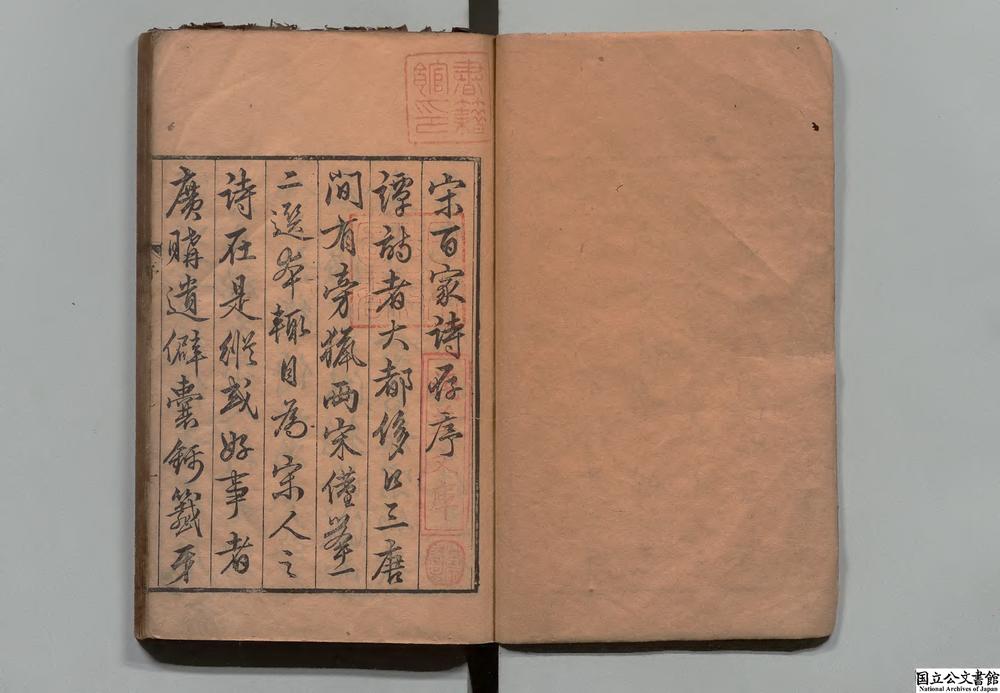 書籍
館印
宋百家詩存序
譚詩者大都侈口三唐
間有旁獵兩宋僅舉一
二選本輒目為宋人之
詩在是縱或好事者
廣購遺僻囊鈔籖牙
文庫
国立公文書館
National Archives of Japan